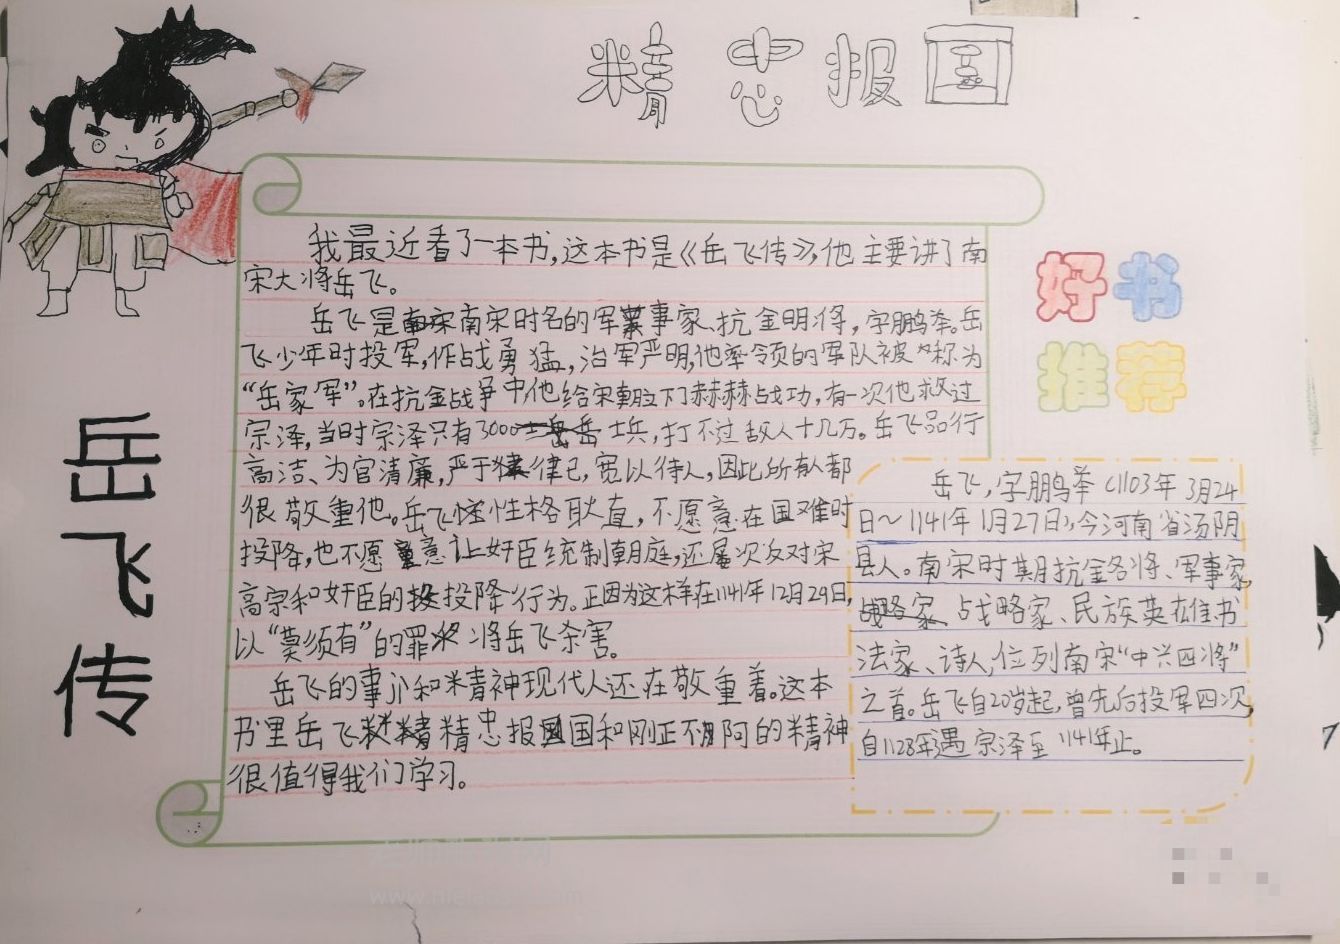 精忠报国
岳飞传
我最近看了一本书,这本书是《岳飞传》,他主要讲了南
宋大将岳飞。
岳飞是南宋时名的军事家、抗金明将,字鹏举。岳
飞少年时投军,作战勇猛,治军严明,他率领的军队被称为
“岳家军”。在抗金战争中,他给宋朝立下了赫赫战功,有一次他救过
宗泽,当时宗泽只有3000士兵,打不过敌人十几万。岳飞品行
高洁、为官清廉,严于律己,宽以待人,因此所有人都
很敬重他。岳飞性格耿直,不愿意在国难时
投降,也不愿意让奸臣统制朝庭,还屡次反对宋
高宗和奸臣的投降行为。正因为这样在1141年12月29日,
以“莫须有”的罪将岳飞杀害。
岳飞的事亦和精神现代人还在敬重着。这本
书里岳飞精忠报国和刚正不阿的精神
很值得我们学习。
好书
推荐
岳飞,字鹏举(1103年3月24
日~1141年1月27日),今河南省汤阴
县人。南宋时期抗金名将、军事家,
战略家、民族英雄、书
法家、诗人,位列南宋“中兴四将”
之首。岳飞自20岁起,曾先后投军四次,
自1128年遇宗泽至1141年止。